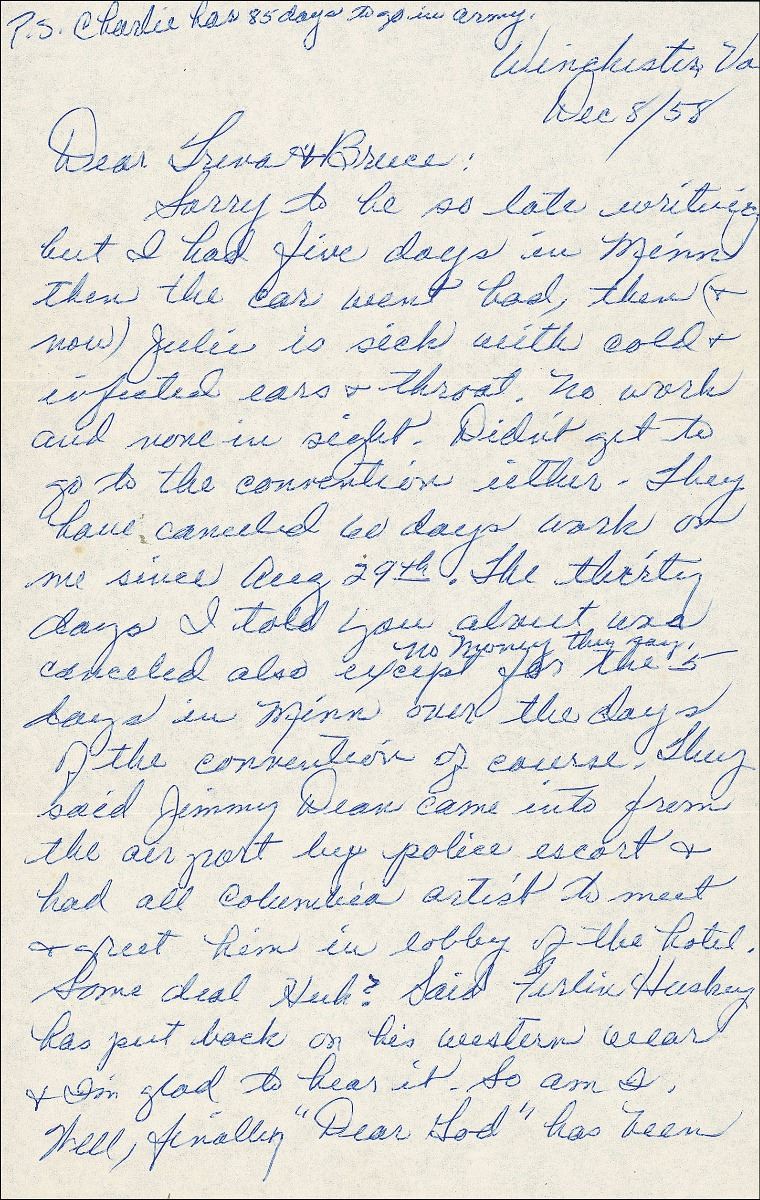 P.S. Charlie has 85 days to go in army.
Winchester, Va
Dec 8/58
Dear Treva & Bruce:
Sorry to be so late writing
but I had five days in Minn
then the car went bad, then (&
now) Julie is sick with cold &
infected ears & throat. No work
and none in sight. Didn't get to
go to the convention either. They
have canceled 60 days work on
me since Aug 29th. The thirty
days I told you about was
no money they say.
canceled also except for the 5
days in Minn over the days
of the convention of course. They
said Jimmy Dean came into from
the air port by police escort &
had all Columbia artist to meet
& greet him in lobby of the hotel.
Some deal Huh? Said Ferlin Huskey
has put back on his western wear
& I'm glad to hear it. So am I.
Well, finally "Dear God" has been